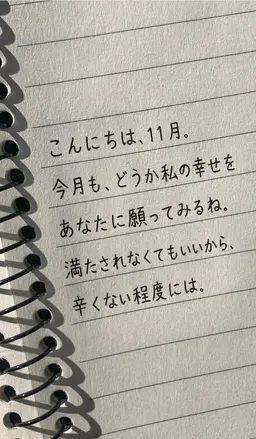 こんにちは、11月。
今月も、どうか私の幸せを
あなたに願ってみるね。
満たされなくてもいいから、
辛くない程度には。